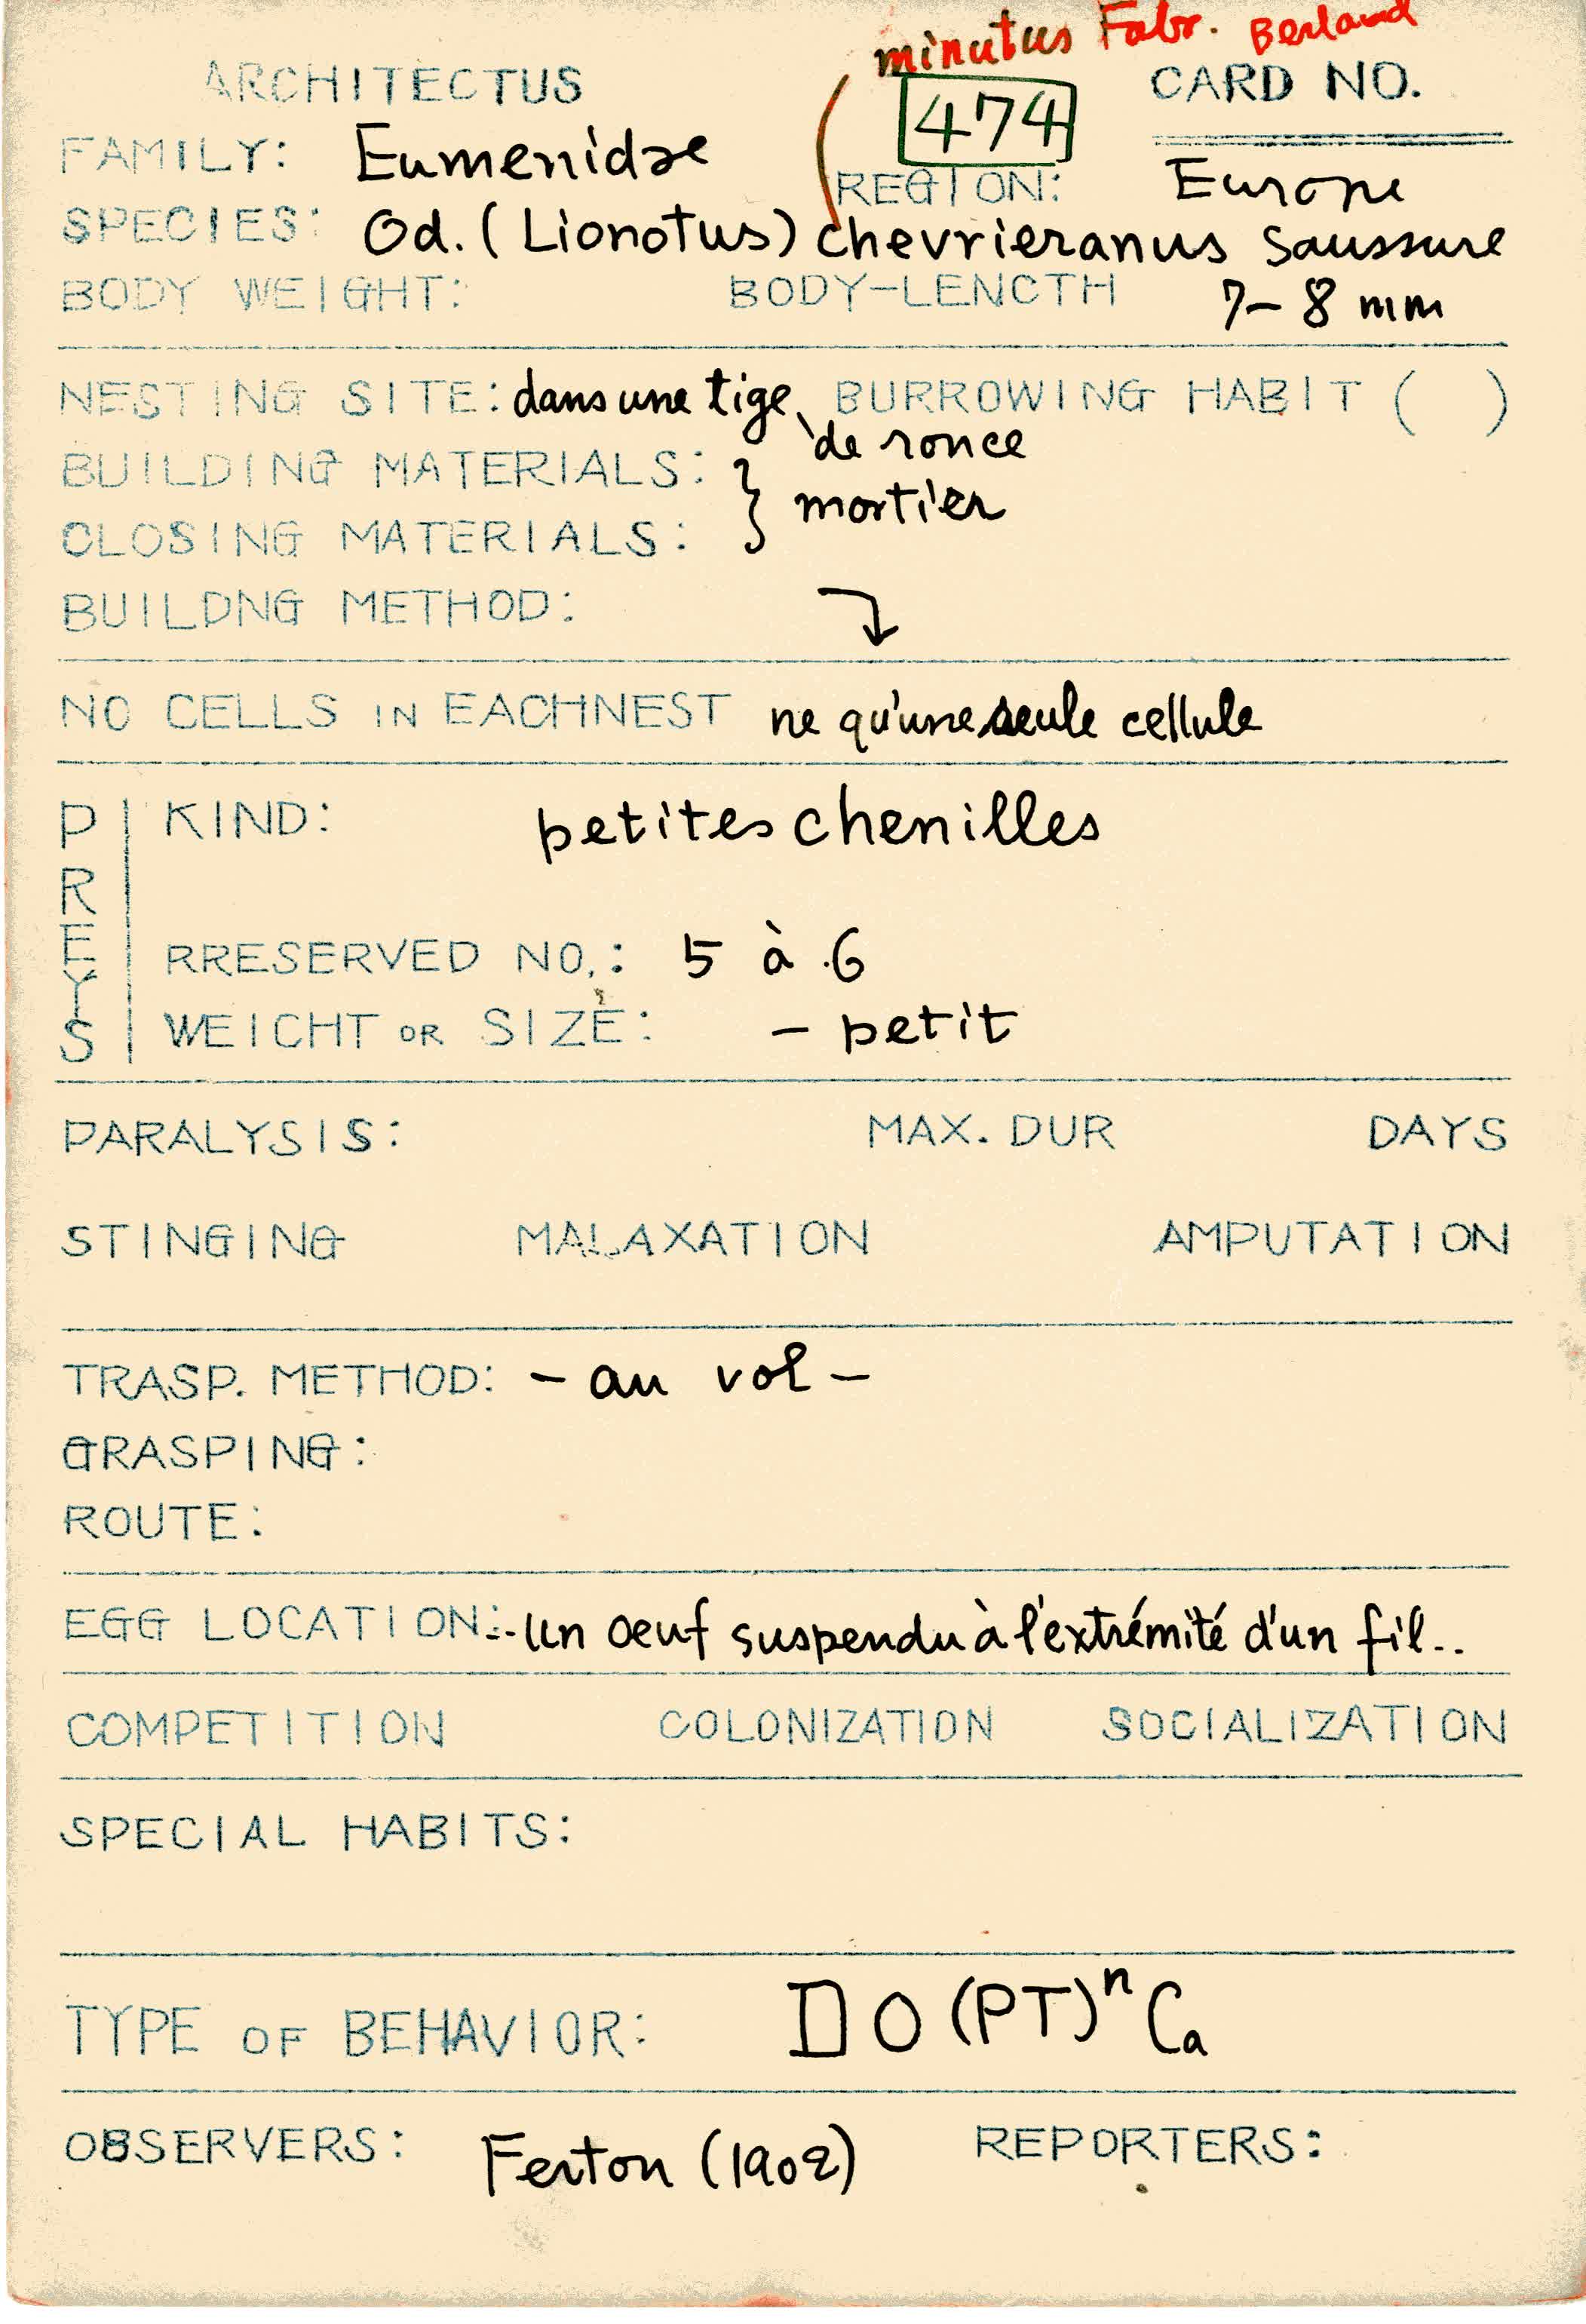 minutus Fabr. Berland
ARCHITECTUS 474 CARD NO.
FAMILY: Eumenidae REGION: Europe
SPECIES: Od. (Lionotus) chevrieranus Saussure
BODY WEIGHT: BODY-LENCTH 7-8 mm
NESTING SITE: dans une tige BURROWING HABIT ( )
de ronce
BUILDING MATERIALS: } mortier
CLOSING MATERIALS:
BUILDNG METHOD:
NO CELLS IN EACHNEST ne qu'une seule cellule
PREYS
KIND: petites chenilles
RRESERVED NO.: 5 à 6
WEICHT OR SIZE: - petit
PARALYSIS: MAX. DUR DAYS
STINGING MALAXATION AMPUTATION
TRASP. METHOD: - au vol -
GRASPING:
ROUTE:
EGG LOCATION: -- Un oeuf suspendu à l'extrémité d'un fil..
COMPETITION COLONIZATION SOCIALIZATION
SPECIAL HABITS:
TYPE OF BEHAVIOR: DO(PT)ⁿCa
OBSERVERS: Ferton (1902) REPORTERS: